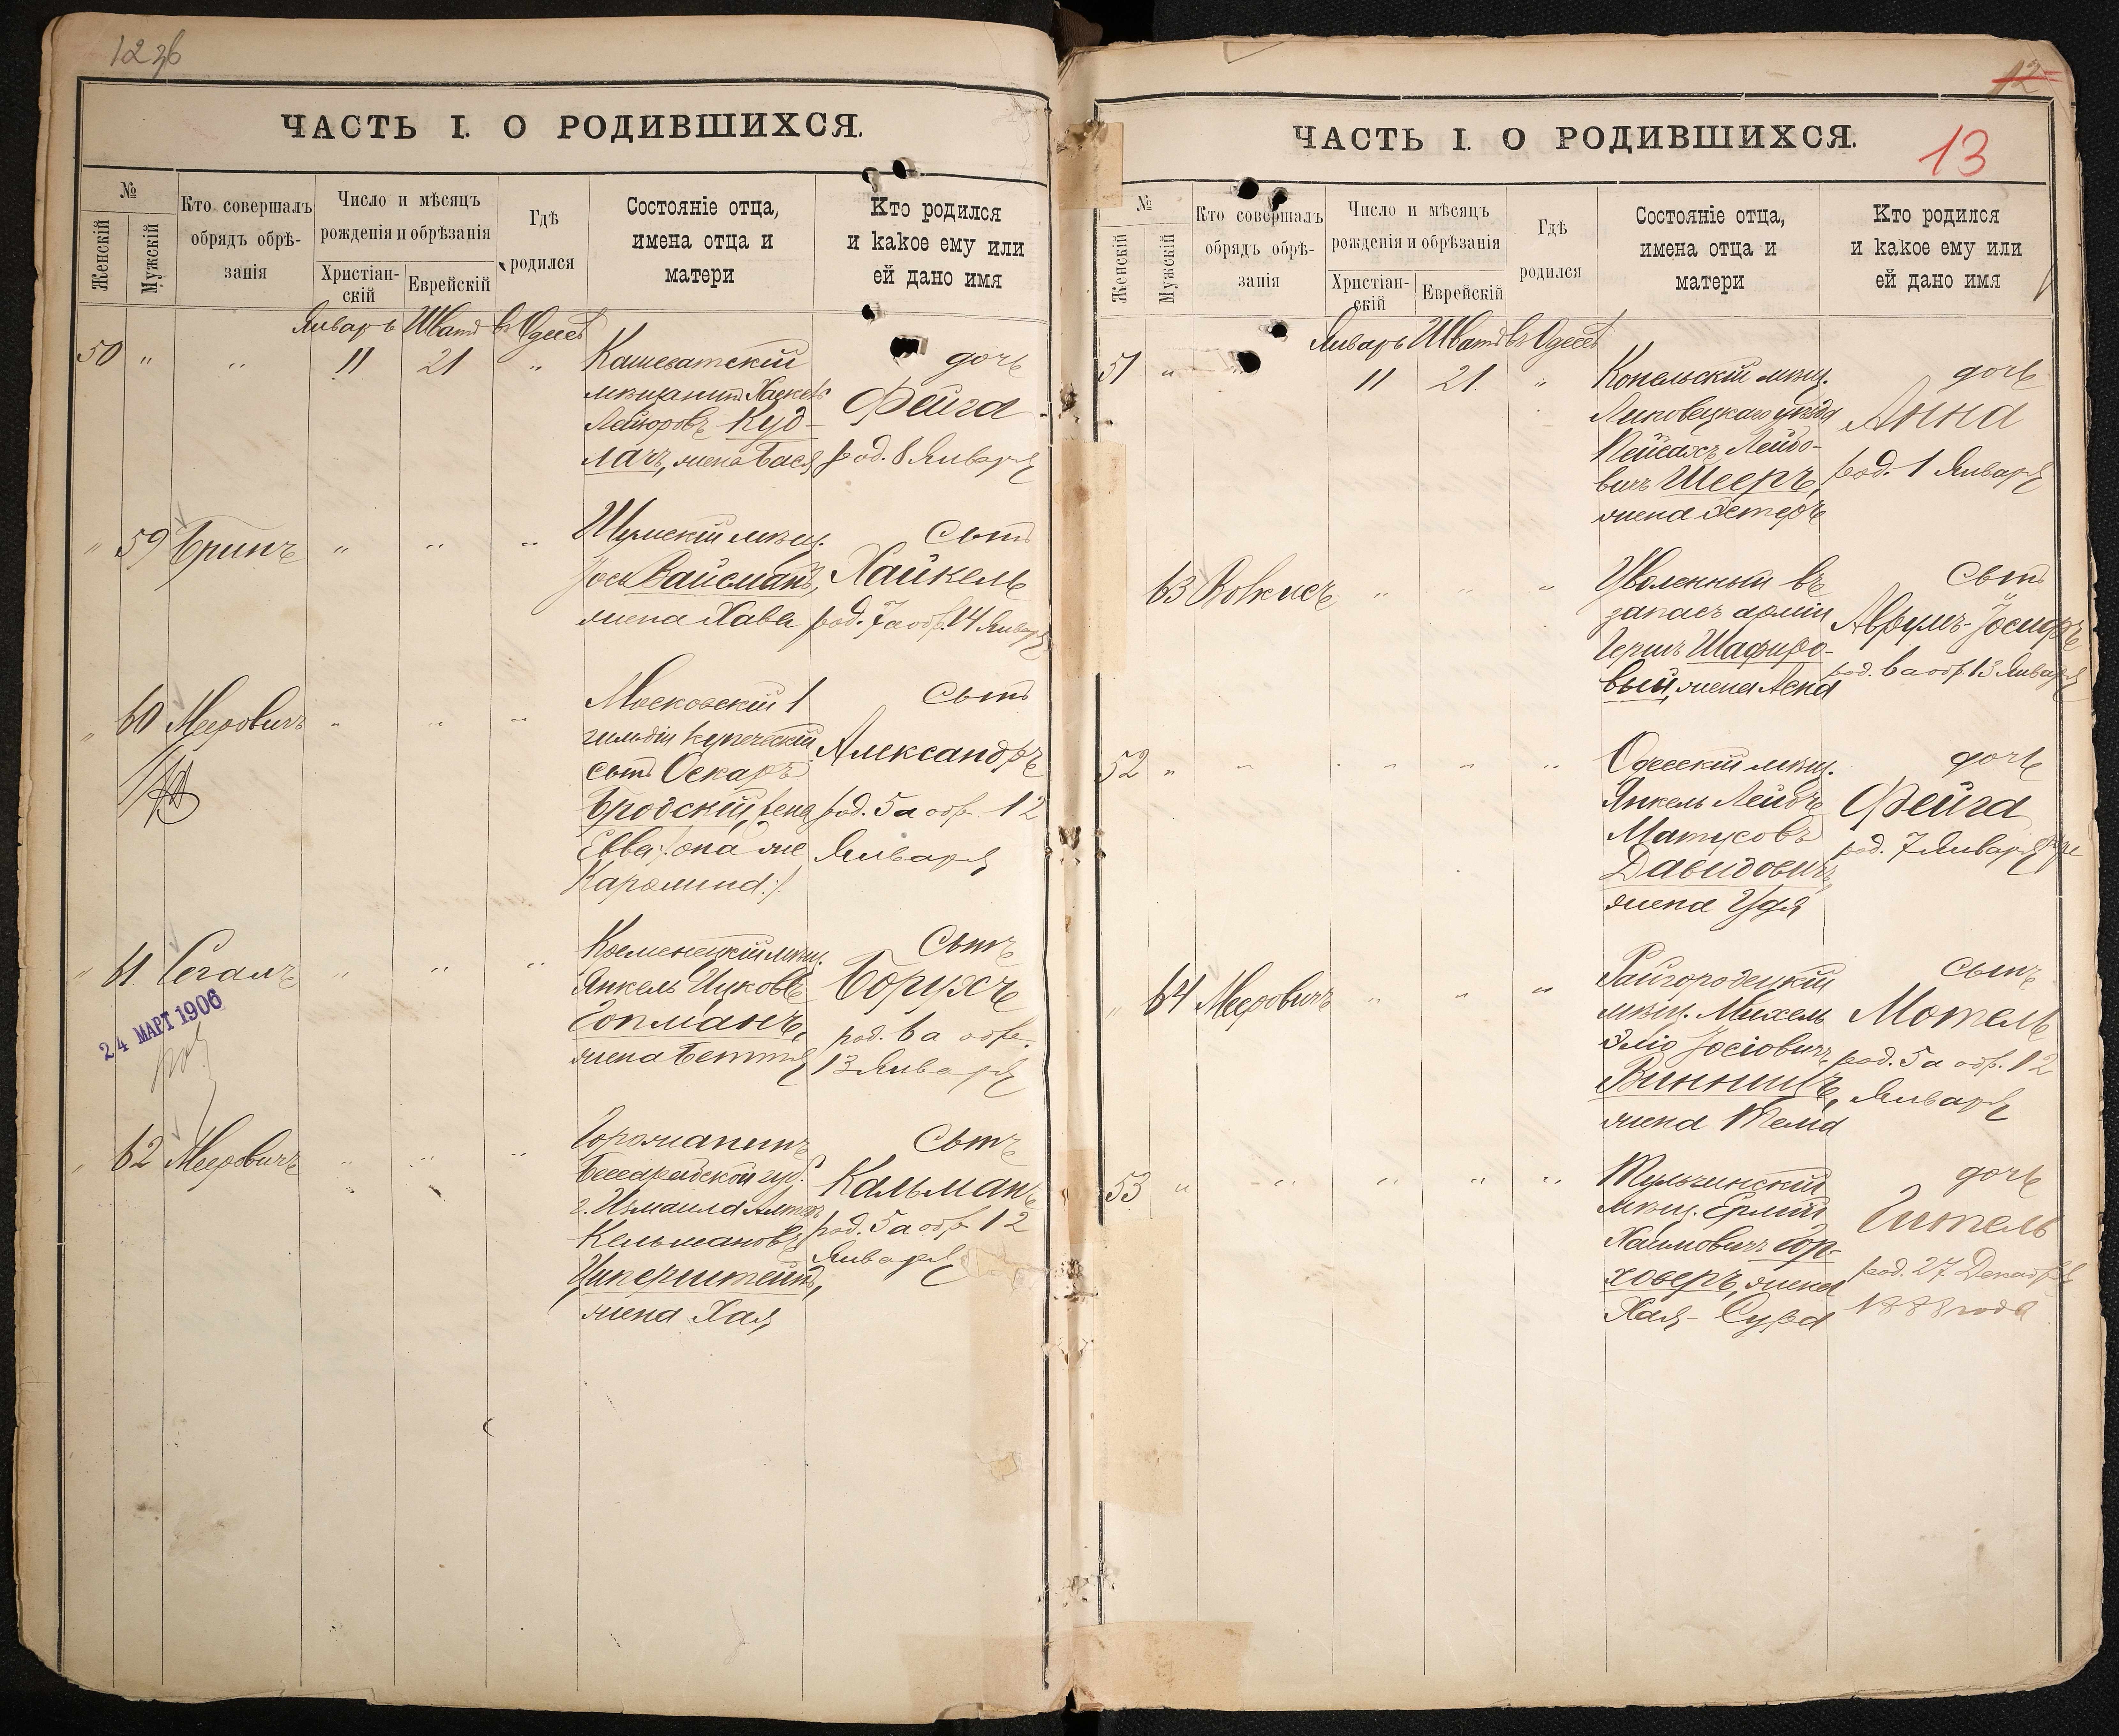 12 зб
ЧАСТЬ I. О РОДИВШИХСЯ.
№
Женскій
Мужскій
Кто совершалъ
обрядъ обрѣ-
занія
Число и мѣсяцъ
рожденія и обрѣзанія
Христіан-
скій
Еврейскій
Гдѣ
родился
Состояніе отца,
имена отца и
матери
Кто родился
и какое ему или
ей дано имя
Январь Шватъ въ Одессѣ
50 " " 11 21 "
Кашеватскій
мѣщанинъ Хаскель
Лейзоровъ Куд-
лачъ, жена Бася
дочь
Фейга
род. 8 Января
" 59 Бринъ " " "
Шумскій мѣщ.
Іось Вайсманъ,
жена Хава
Сынъ
Хайкель
род. 7 а обр. 14 Января
" 60 Мееровичъ " " "
Московскій 1
гильдіи купеческій
сынъ Оскаръ
Бродскій, жена
Евва /: она же
Каролина :/
Сынъ
Александръ
род. 5 а обр. 12
Января
" 61 Сегалъ " " "
24 МАРТ 1906
Кременецкій мѣщ.
Янкель Ицковъ
Гопманъ,
жена Бетя
Сынъ
Борухъ
род. 6 а обр.
13 Января
" 62 Мееровичъ " " "
Горожанинъ
Бессарабской губ.
г. Измаила Алтеръ
Кельмановъ
Цикерштейнъ,
жена Хая
Сынъ
Кальманъ
род. 5 а обр 12
Января
12
ЧАСТЬ I. О РОДИВШИХСЯ.
13
№
Женскій
Мужскій
Кто совершалъ
обрядъ обрѣ-
занія
Число и мѣсяцъ
рожденія и обрѣзанія
Христіан-
скій
Еврейскій
Гдѣ
родился
Состояніе отца,
имена отца и
матери
Кто родился
и какое ему или
ей дано имя
Январь Шватъ въ Одессѣ
51 " " 11 21 "
Копельскій мѣщ.
Липовецкаго уѣзда
Пейсахъ Лейбо-
вичъ Шееръ,
жена Эстеръ
дочь
Анна
род. 1 Января
63 Волкисъ " " "
Уволенный въ
запасъ арміи
Гершъ Шафиро-
вый, жена Лея
Сынъ
Аврумъ-Іосифъ
род. 6 а обр. 13 Января
52 " " " " "
Одесскій мѣщ.
Янкель Лейбъ
Матусовъ
Давидовичъ,
жена Удя
дочь
Фейга
род. 7 Января
" 64 Мееровичъ " " "
Райгородецкій
мѣщ. Михель
Эліо Іосіовичъ
Винницъ,
жена Тема
Сынъ
Мотель
род. 5 а обр. 12
Января
53 " " " " "
Тульчинскій
мѣщ.
Хаимовичъ Ор-
ховеръ, жена
Хая-Сура
дочь
Гитель
род. 27 Декабря
1888 года